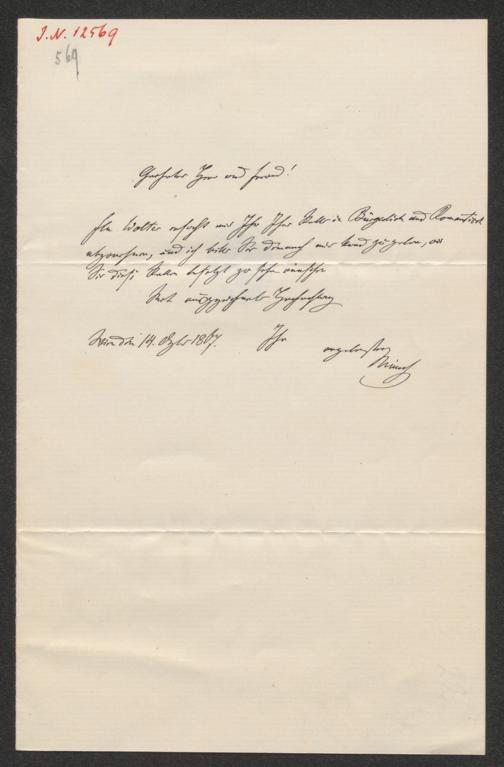 J.N. 12569
569
Geehrter Herr und Freund!
Frl. Wolter ersucht mir Ihr Ihre Rolle in Bürgerlich und Romantisch
abzunehmen, und ich bitte Sie demnach mir kund zu geben, wie
Sie diese Rollen besetzt zu sehen wünschen
Mit ausgezeichneter Hochachtung
Wien den 14. 1867. Ihr ergebenster